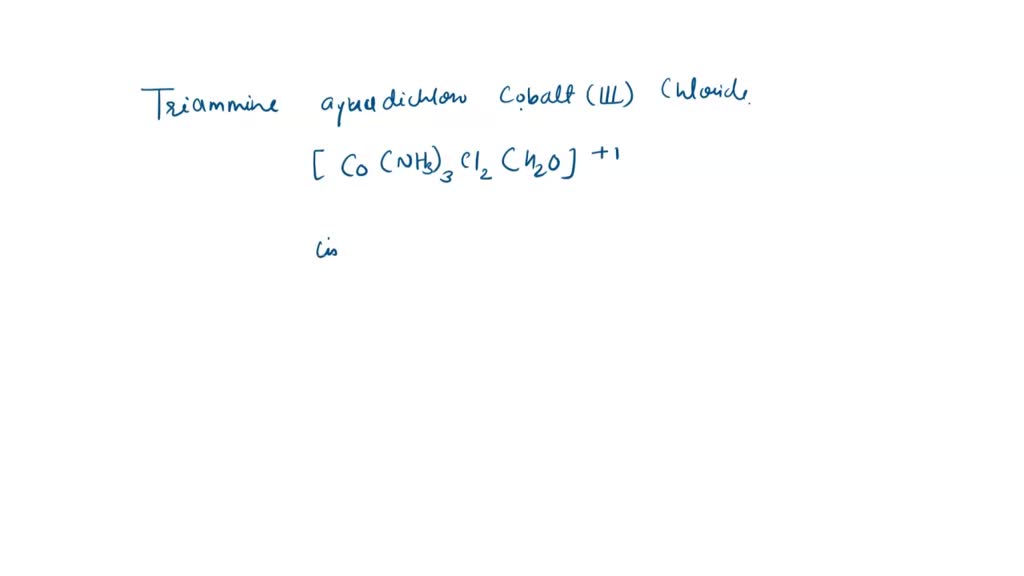 Triammine aquadichloro Cobalt (III) Chloride.
[ Co (NH3)3 Cl2 (H2O] +1
cis